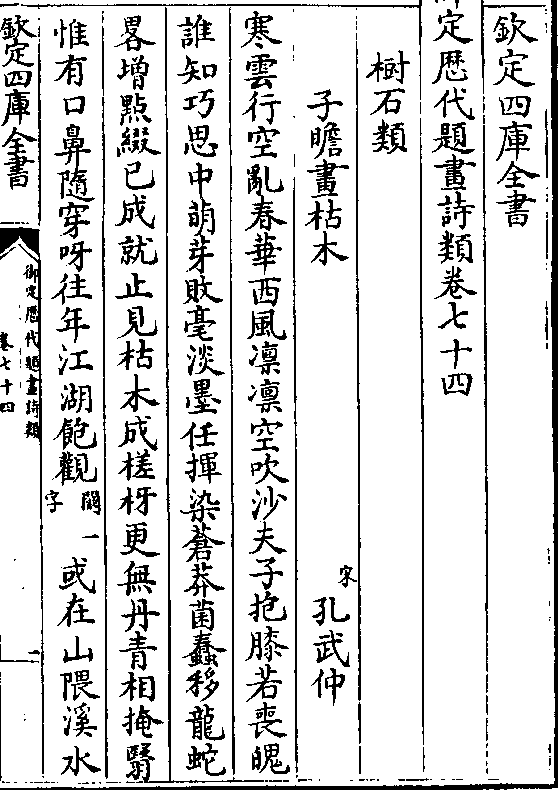 欽定四庫全書
御定歴代題畫詩類卷七十四
樹石類
子瞻畫枯木
宋 孔武仲
寒雲行空亂春華西風凛凛空吹沙夫子抱膝若喪魄
誰知巧思中萌芽敗毫淡墨任揮染蒼莽菌蠢移龍蛇
畧增點綴已成就止見枯木成槎枒更無丹青相掩翳
惟有口鼻隨穿呀往年江湖飽觀闕一字或在山隈溪水
欽定四庫全書
御定歴代題畫詩類
卷七十四
一